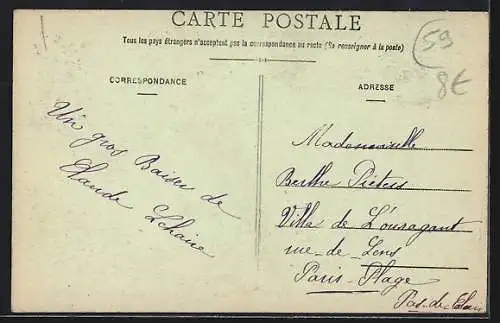 CARTE POSTALE
Tous les pays étrangers n'acceptent pas la correspondance au recto (Se renseigner à la poste)
59
8€
CORRESPONDANCE
ADRESSE
Un gros Baiser de
Claude
Mademoiselle
Berthe Pieters
Villa de L'Ouragant
rue-de-Lens
Paris-Plage
Pas-de-Calais